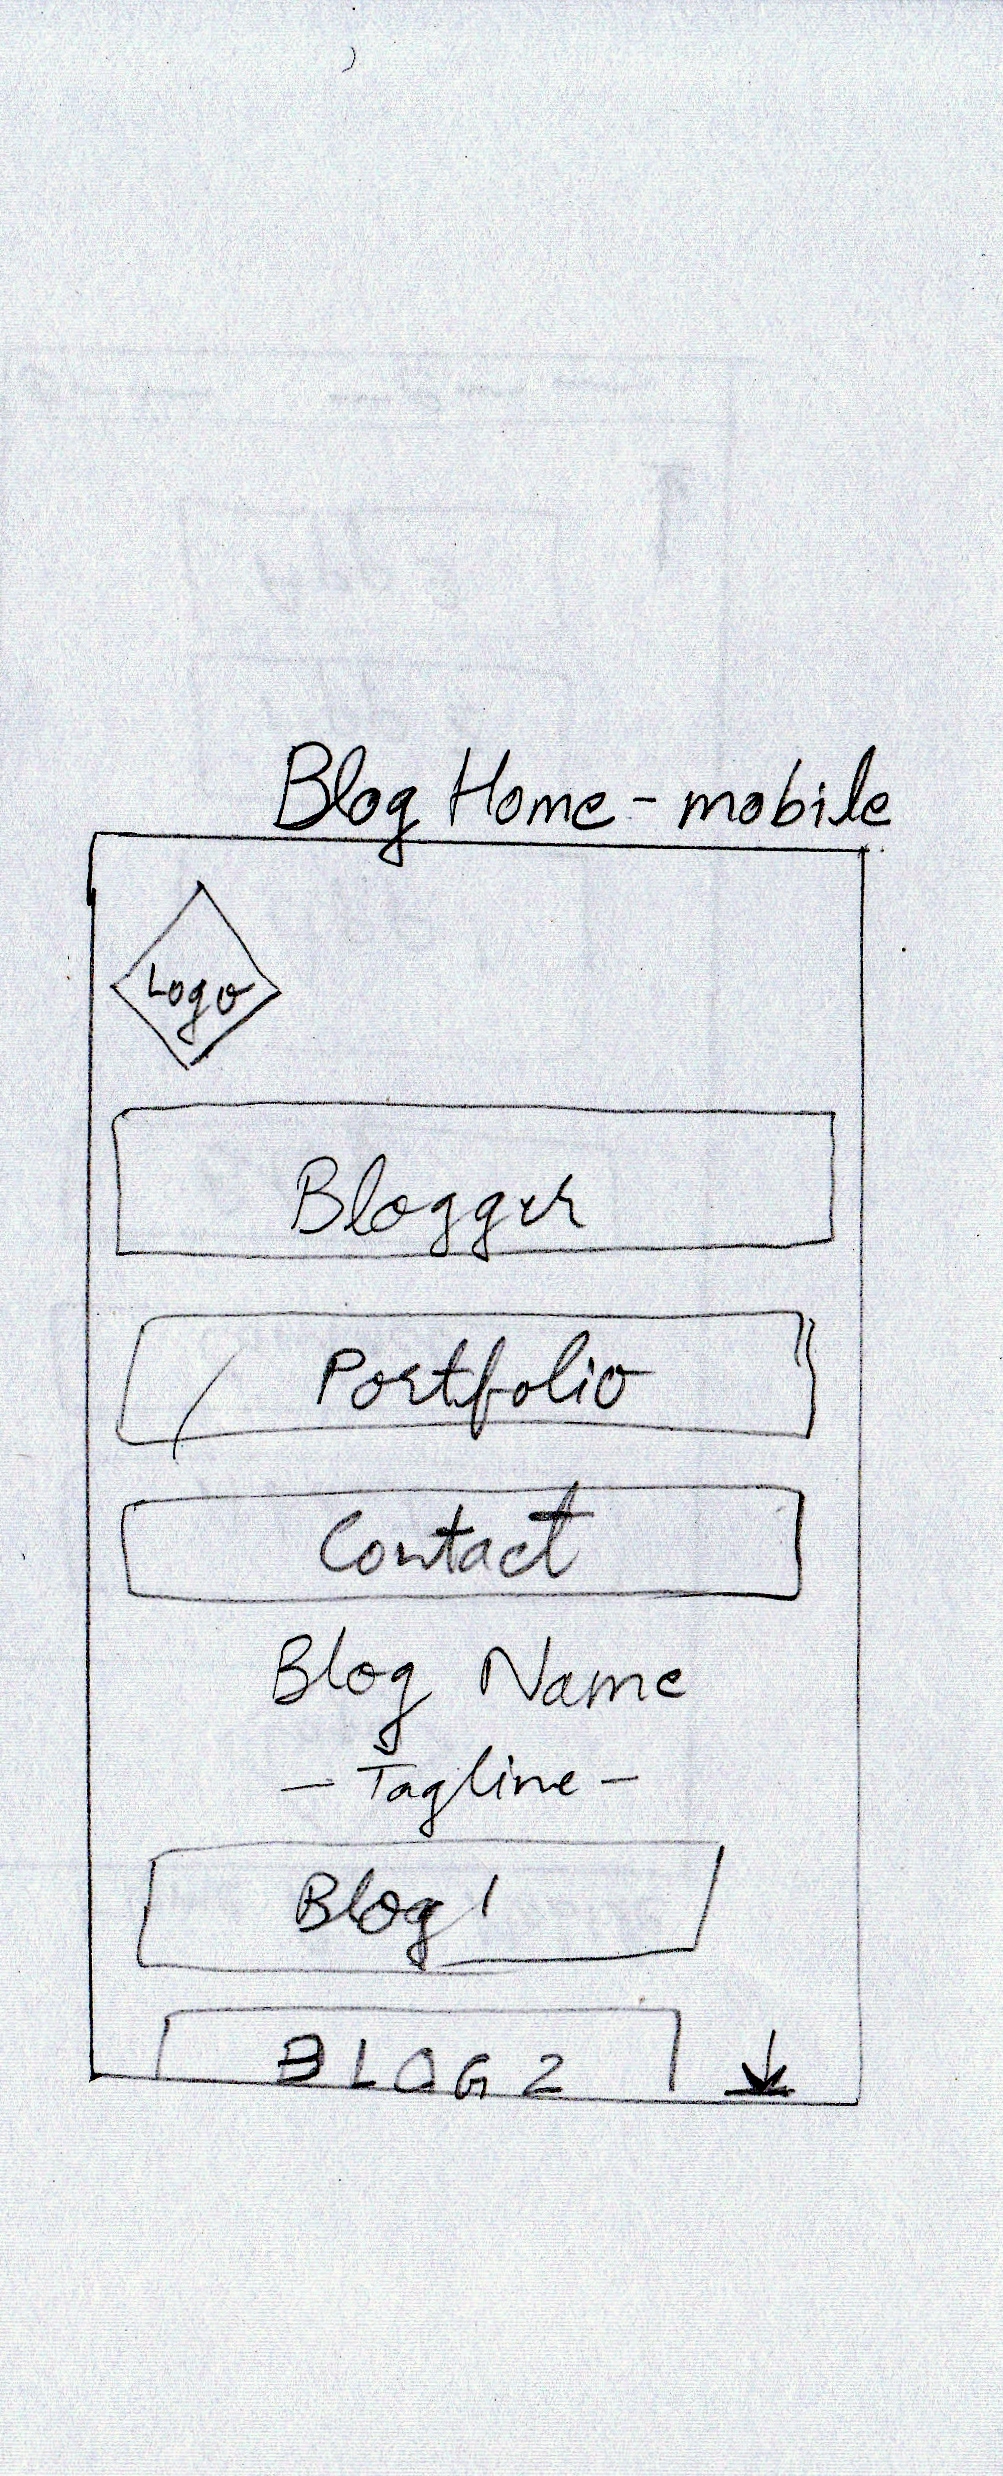 Blog Home - mobile
Logo
Blogger
Portfolio
Contact
Blog Name
- Tagline -
Blog 1
BLOG 2